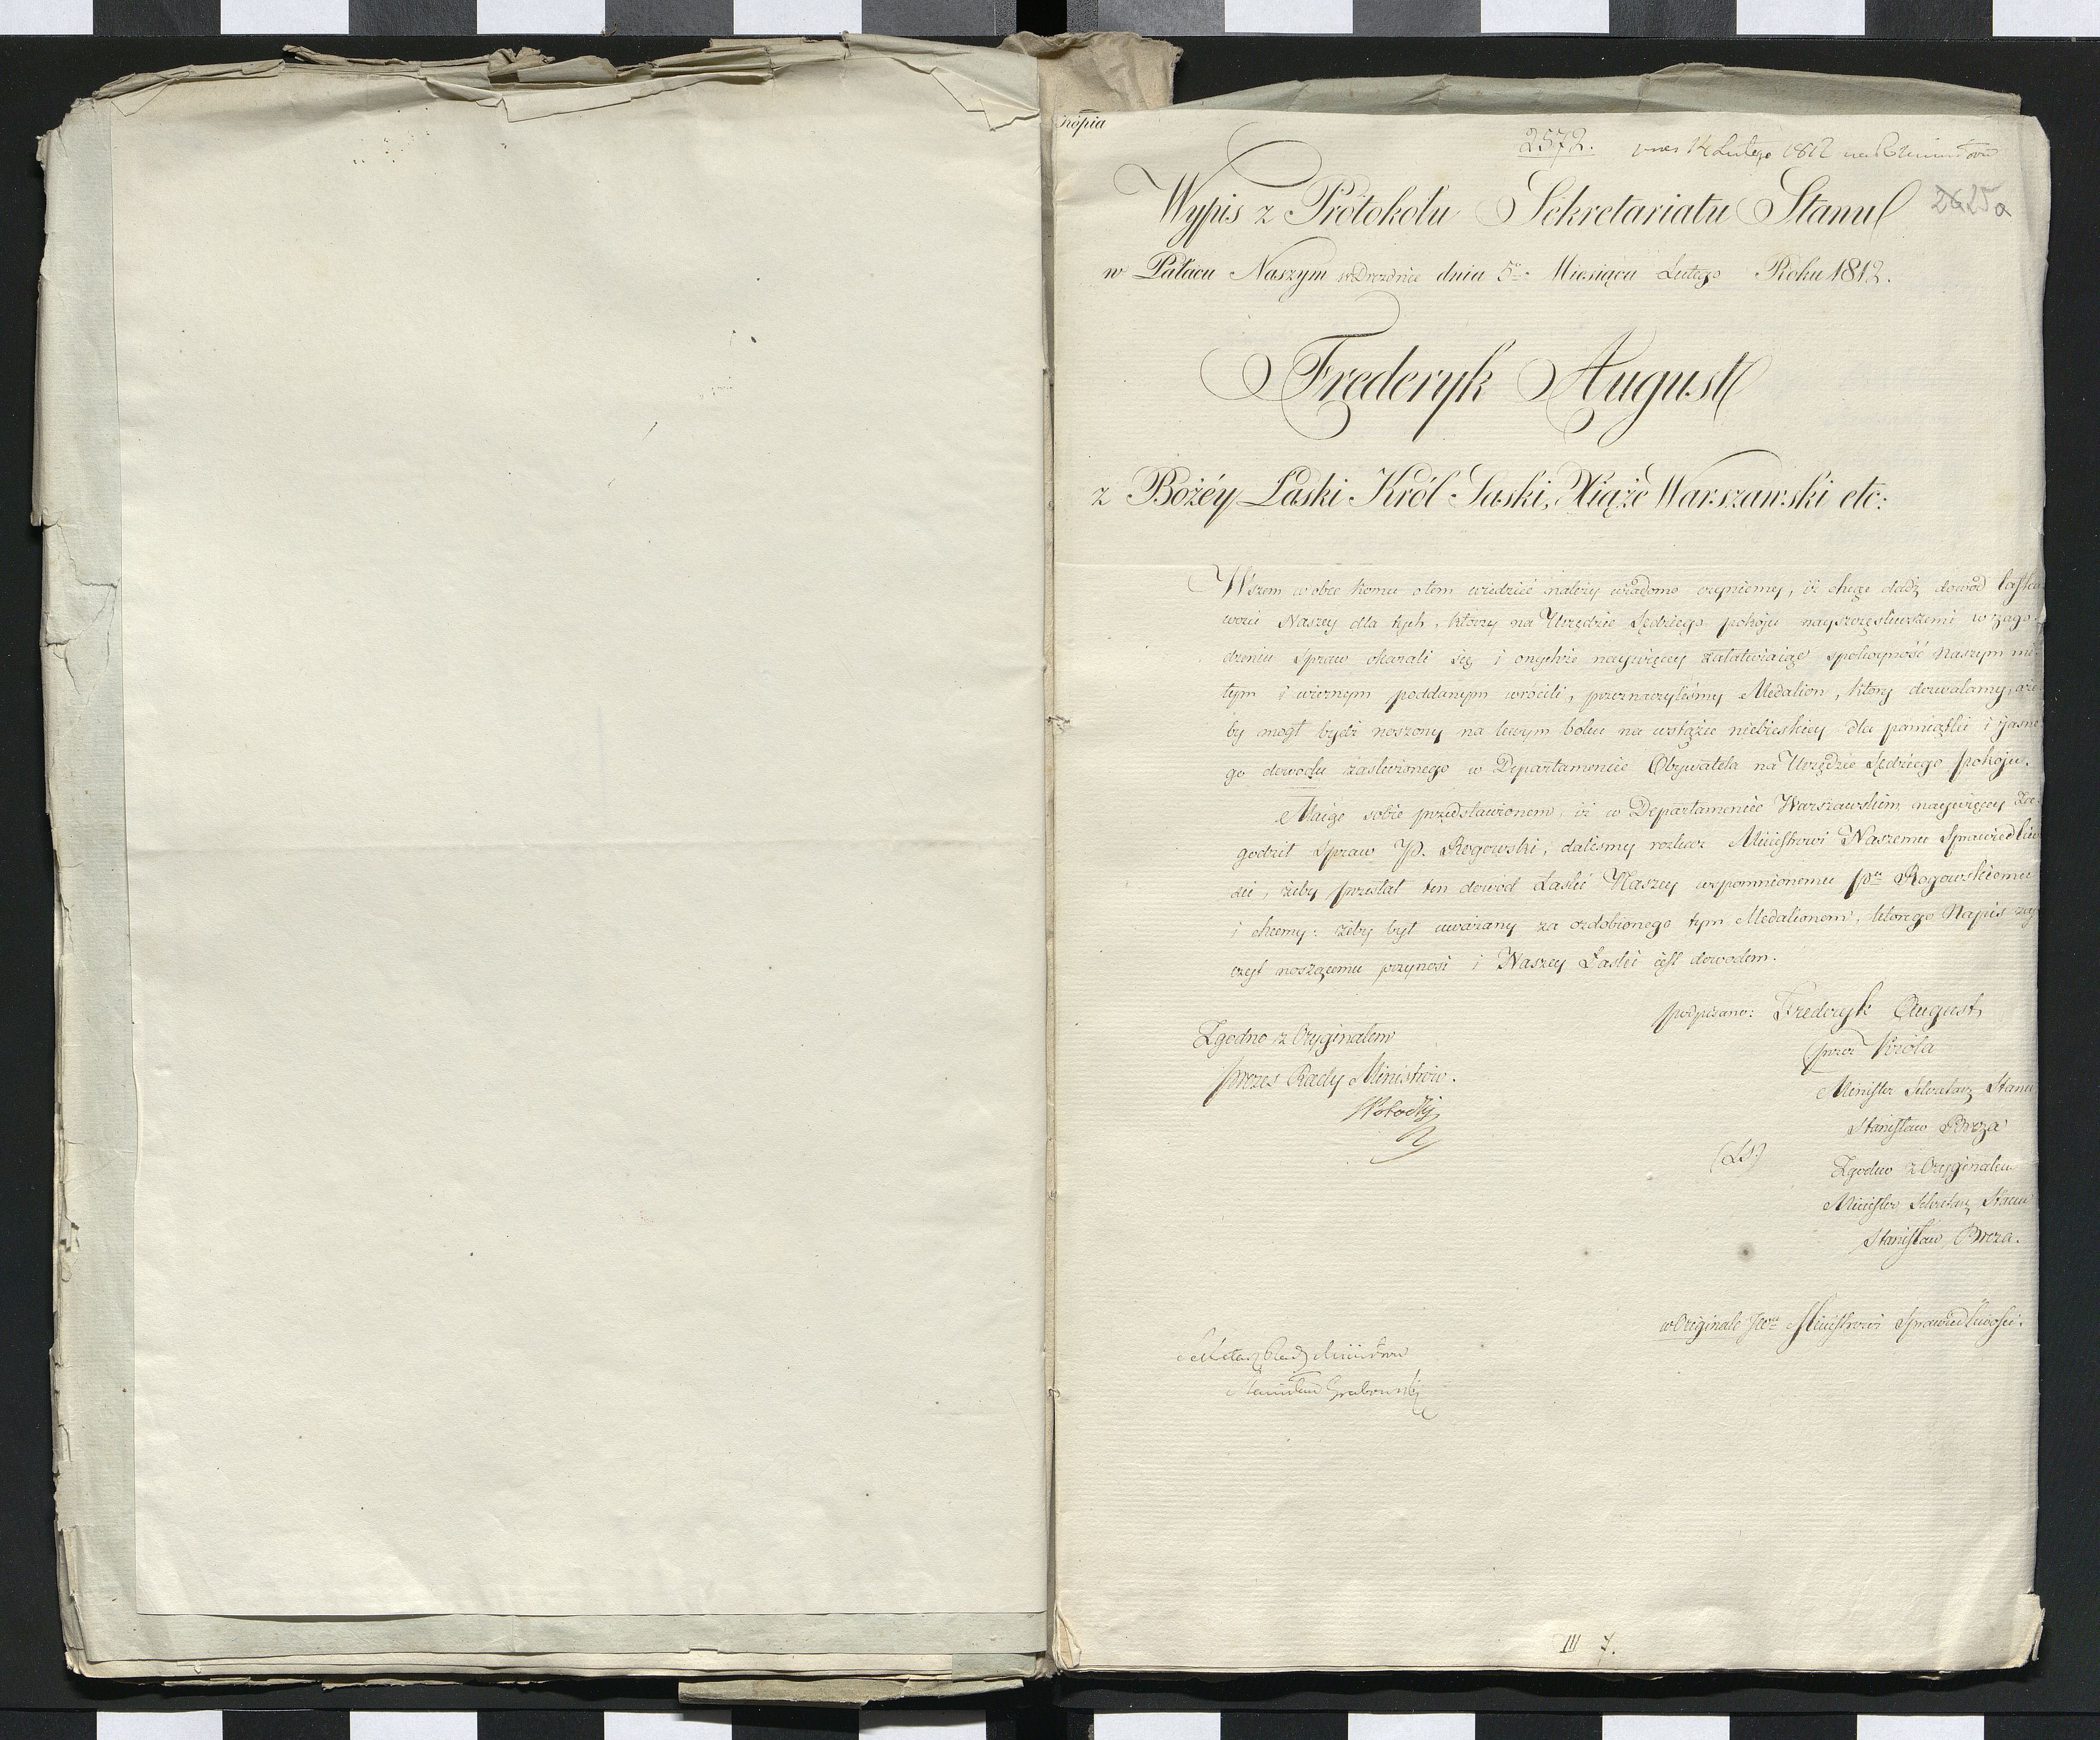 Kopia
2572.
14 Lutego 1812
2625a
Wypis z Protokołu Sekretariatu Stanu
w Pałacu Naszym w Dreznie dnia 5o. Miesiąca Lutego Roku 1812.
Frederyk August
z Bożéy Łaski Król Saski, Xiąże Warszawski etc:
Wszem wobec komu o tem wiedzieć należy wiadomo czyniemy, iż chcąc dadź dowód łaska-
wości Naszey dla tych, którzy na Urzędzie Sędziego pokoju nayszczęśliwszemi w zago-
dzeniu Spraw okazali się i onychże naywięcey załatwiaiąc spokoyność Naszym mi-
łym i wiernym poddanym wrócili, przeznaczyliśmy Medalion, który dozwalamy, aże
by mógł bydź noszony na lewym boku na wstążce niebieskiey dla pamiątki i jasne
go dowodu zasłużonego w Departamencie Obywatela na Urzędzie Sędziego pokoju.
Maiąc sobie przedstawionem, iż w Departamencie Warszawskim naywięcey Za-
godził Spraw P. Rogowski, daliśmy rozkaz Ministrowi Naszemu Sprawiedliwo
ści, żeby przesłał ten dowód Łaski Naszey wspomnionemu Pu Rogowskiemu
i chcemy: żeby był uważany za ozdobionego tym Medalionem, którego Napis zasz
czyt noszącemu przynosi i Naszey Łaski iest dowodem.
podpisano: Frederyk August,
Zgodno z Oryginałem
przez Króla
Prezes Rady Ministrów.
Minister Sekretarz Stanu
Stanisław Breza
(LS)
Zgodno z Oryginałem
Minister Sekretarz Stanu
Stanisław Breza.
w Originale JWmu Ministrowi Sprawiedliwości.
Sekretarz Rady Ministrów
Stanisław Grabowski
III 7.